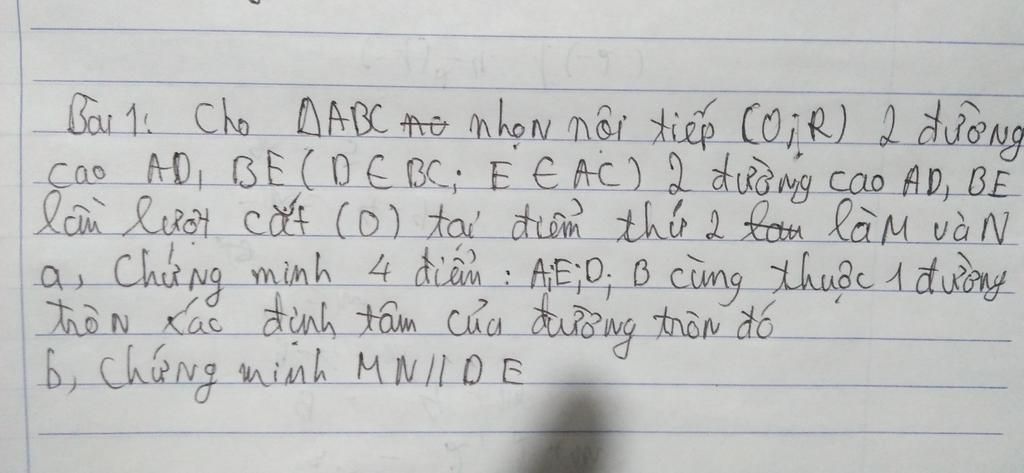 Bài 1: Cho ΔABC nhọn nội tiếp (O;R) 2 đường
cao AD, BE (D ∈ BC; E ∈ AC) 2 đường cao AD, BE
lần lượt cắt (O) tại điểm thứ 2 là M và N
a, Chứng minh 4 điểm: A;E;D; B cùng thuộc 1 đường
tròn xác định tâm của đường tròn đó
b, Chứng minh MN // DE